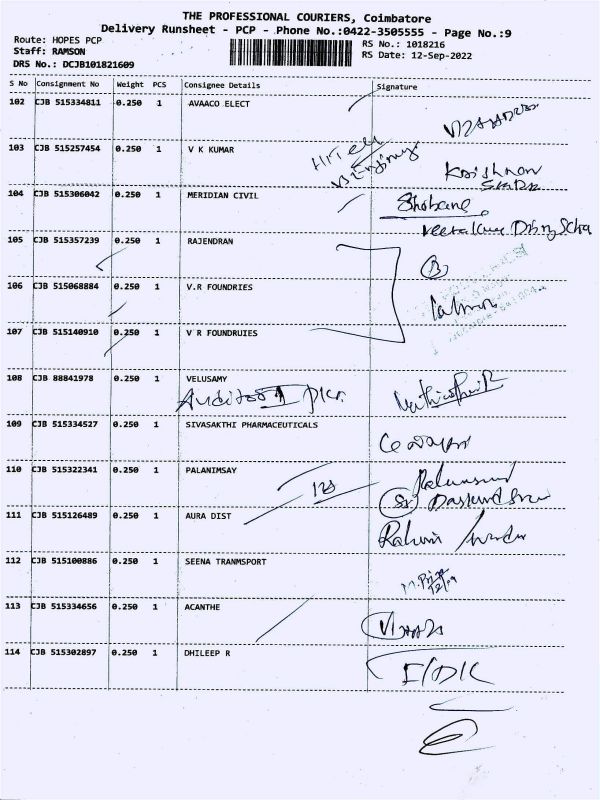 THE PROFESSIONAL COURIERS, Coimbatore
Delivery Runsheet - PCP - Phone No.:0422-3505555 - Page No.:9
Route: HOPES PCP
RS No.: 1018216
Staff: RAMSON
RS Date: 12-Sep-2022
DRS No.: DCJB101821609
S No Consignment No Weight PCS Consignee Details Signature
102 CJB 515334811 0.250 1 AVAACO ELECT
103 CJB 515257454 0.250 1 V K KUMAR
Krishnan
104 CJB 515306042 0.250 1 MERIDIAN CIVIL
Shobane
105 CJB 515357239 0.250 1 RAJENDRAN
106 CJB 515068884 0.250 1 V.R FOUNDRIES
107 CJB 515140910 0.250 1 V R FOUNDRUIES
108 CJB 88841978 0.250 1 VELUSAMY
Auditor
109 CJB 515334527 0.250 1 SIVASAKTHI PHARMACEUTICALS
110 CJB 515322341 0.250 1 PALANIMSAY
111 CJB 515126489 0.250 1 AURA DIST
112 CJB 515100886 0.250 1 SEENA TRANMSPORT
113 CJB 515334656 0.250 1 ACANTHE
114 CJB 515302897 0.250 1 DHILEEP R